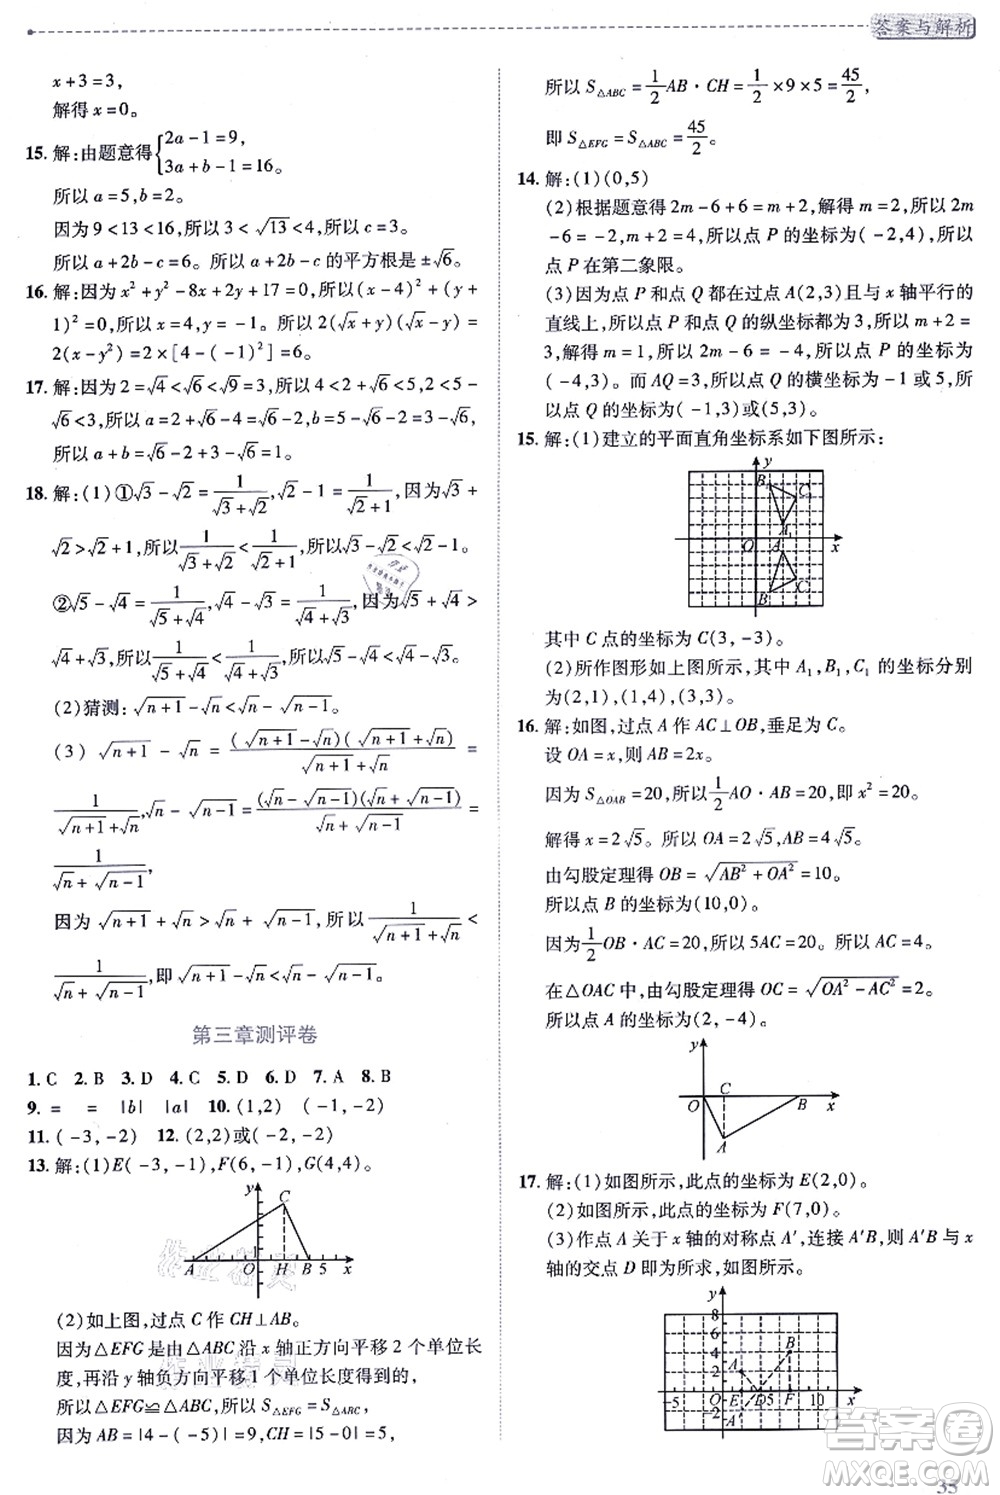 答案与解析
x+3=3,
解得 x=0。
15. 解:由题意得{2a-1=9, 3a+b-1=16。
所以 a=5,b=2。
因为 9<13<16,所以 3<√13<4,所以 c=3。
所以 a+2b-c=6。所以 a+2b-c 的平方根是 ±√6。
16. 解:因为 x²+y²-8x+2y+17=0,所以 (x-4)²+(y+
1)²=0,所以 x=4,y=-1。所以 2(√x+y)(√x-y)=
2(x-y²)=2×[4-(-1)²]=6。
17. 解:因为 2=√4<√6<√9=3,所以 4<2+√6<5,2<5-
√6<3,所以 a=2+√6-4=√6-2,b=5-√6-2=3-√6,
所以 a+b=√6-2+3-√6=1。
18. 解:(1)①√3-√2=1/(√3+√2),√2-1=1/(√2+1),因为√3+
√2>√2+1,所以1/(√3+√2)<1/(√2+1),所以√3-√2<√2-1。
②√5-√4=1/(√5+√4),√4-√3=1/(√4+√3),因为√5+√4>
√4+√3,所以1/(√5+√4)<1/(√4+√3),所以√5-√4<√4-√3。
(2)猜测:√(n+1)-√n<√n-√(n-1)。
(3) √(n+1)-√n=(√(n+1)-√n)(√(n+1)+√n)/(√(n+1)+√n)=
1/(√(n+1)+√n),√n-√(n-1)=(√n-√(n-1))(√n+√(n-1))/(√n+√(n-1))=
1/(√n+√(n-1)),
因为 √(n+1)+√n>√n+√(n-1),所以 1/(√(n+1)+√n)<
1/(√n+√(n-1)),即 √(n+1)-√n<√n-√(n-1)。
第三章测评卷
1. C 2. B 3. D 4. C 5. D 6. D 7. A 8. B
9. = = |b| |a| 10. (1,2) (-1,-2)
11. (-3,-2) 12. (2,2)或(-2,-2)
13. 解:(1)E(-3,-1),F(6,-1),G(4,4)。
y C
A O 1 H B 5 x
(2)如上图,过点 C 作 CH⊥AB。
因为△EFG 由△ABC 沿 x 轴正方向平移 2 个单位长
度,再沿 y 轴负方向平移 1 个单位长度后得到,
所以△EFG≌△ABC,所以 S△EFG=S△ABC,
因为 AB=|4-(-5)|=9,CH=|5-0|=5,
所以 S△ABC=1/2 AB·CH=1/2×9×5=45/2,
即 S△EFG=S△ABC=45/2。
14. 解:(1)(0,5)
(2)根据题意得 2m-6+6=m+2,解得 m=2,所以 2m
-6=-2,m+2=4,所以点 P 的坐标为(-2,4),所以
点 P 在第二象限。
(3)因为点 P 和点 Q 都在过点 A(2,3)且与 x 轴平行的
直线上,所以点 P 和点 Q 的纵坐标都为 3,所以 m+2=
3,解得 m=1,所以 2m-6=-4,所以点 P 的坐标为
(-4,3)。而 AQ=3,所以点 Q 的横坐标为 -1 或 5,所
以点 Q 的坐标为(-1,3)或(5,3)。
15. 解:(1)建立的平面直角坐标系如下图所示:
y
B₁ C₁
A₁
O A x
B C
其中 C 点的坐标为 C(3,-3)。
(2)所作图形如上图所示,其中 A₁,B₁,C₁ 的坐标分别
为(2,1),(1,4),(3,3)。
16. 解:如图,过点 A 作 AC⊥OB,垂足为 C。
设 OA=x,则 AB=2x。
因为 S△OAB=20,所以1/2 AO·AB=20,即 x²=20。
解得 x=2√5。所以 OA=2√5,AB=4√5。
由勾股定理得 OB=√(AB²+OA²)=10。
所以点 B 的坐标为(10,0)。
因为1/2 OB·AC=20,所以 5AC=20。所以 AC=4。
在△OAC 中,由勾股定理得 OC=√(OA²-AC²)=2。
所以点 A 的坐标为(2,-4)。
y
O C B x
A
17. 解:(1)如图所示,此点的坐标为 E(2,0)。
(2)如图所示,此点的坐标为 F(7,0)。
(3)作点 A 关于 x 轴的对称点 A′,连接 A′B,则 A′B 与 x
轴的交点 D 即为所求,如图所示。
y
8
6
4 B
A 2
-5 O E D 5 F 10 x
-2 A′
35
答案圈
MXQE.COM
作业精灵